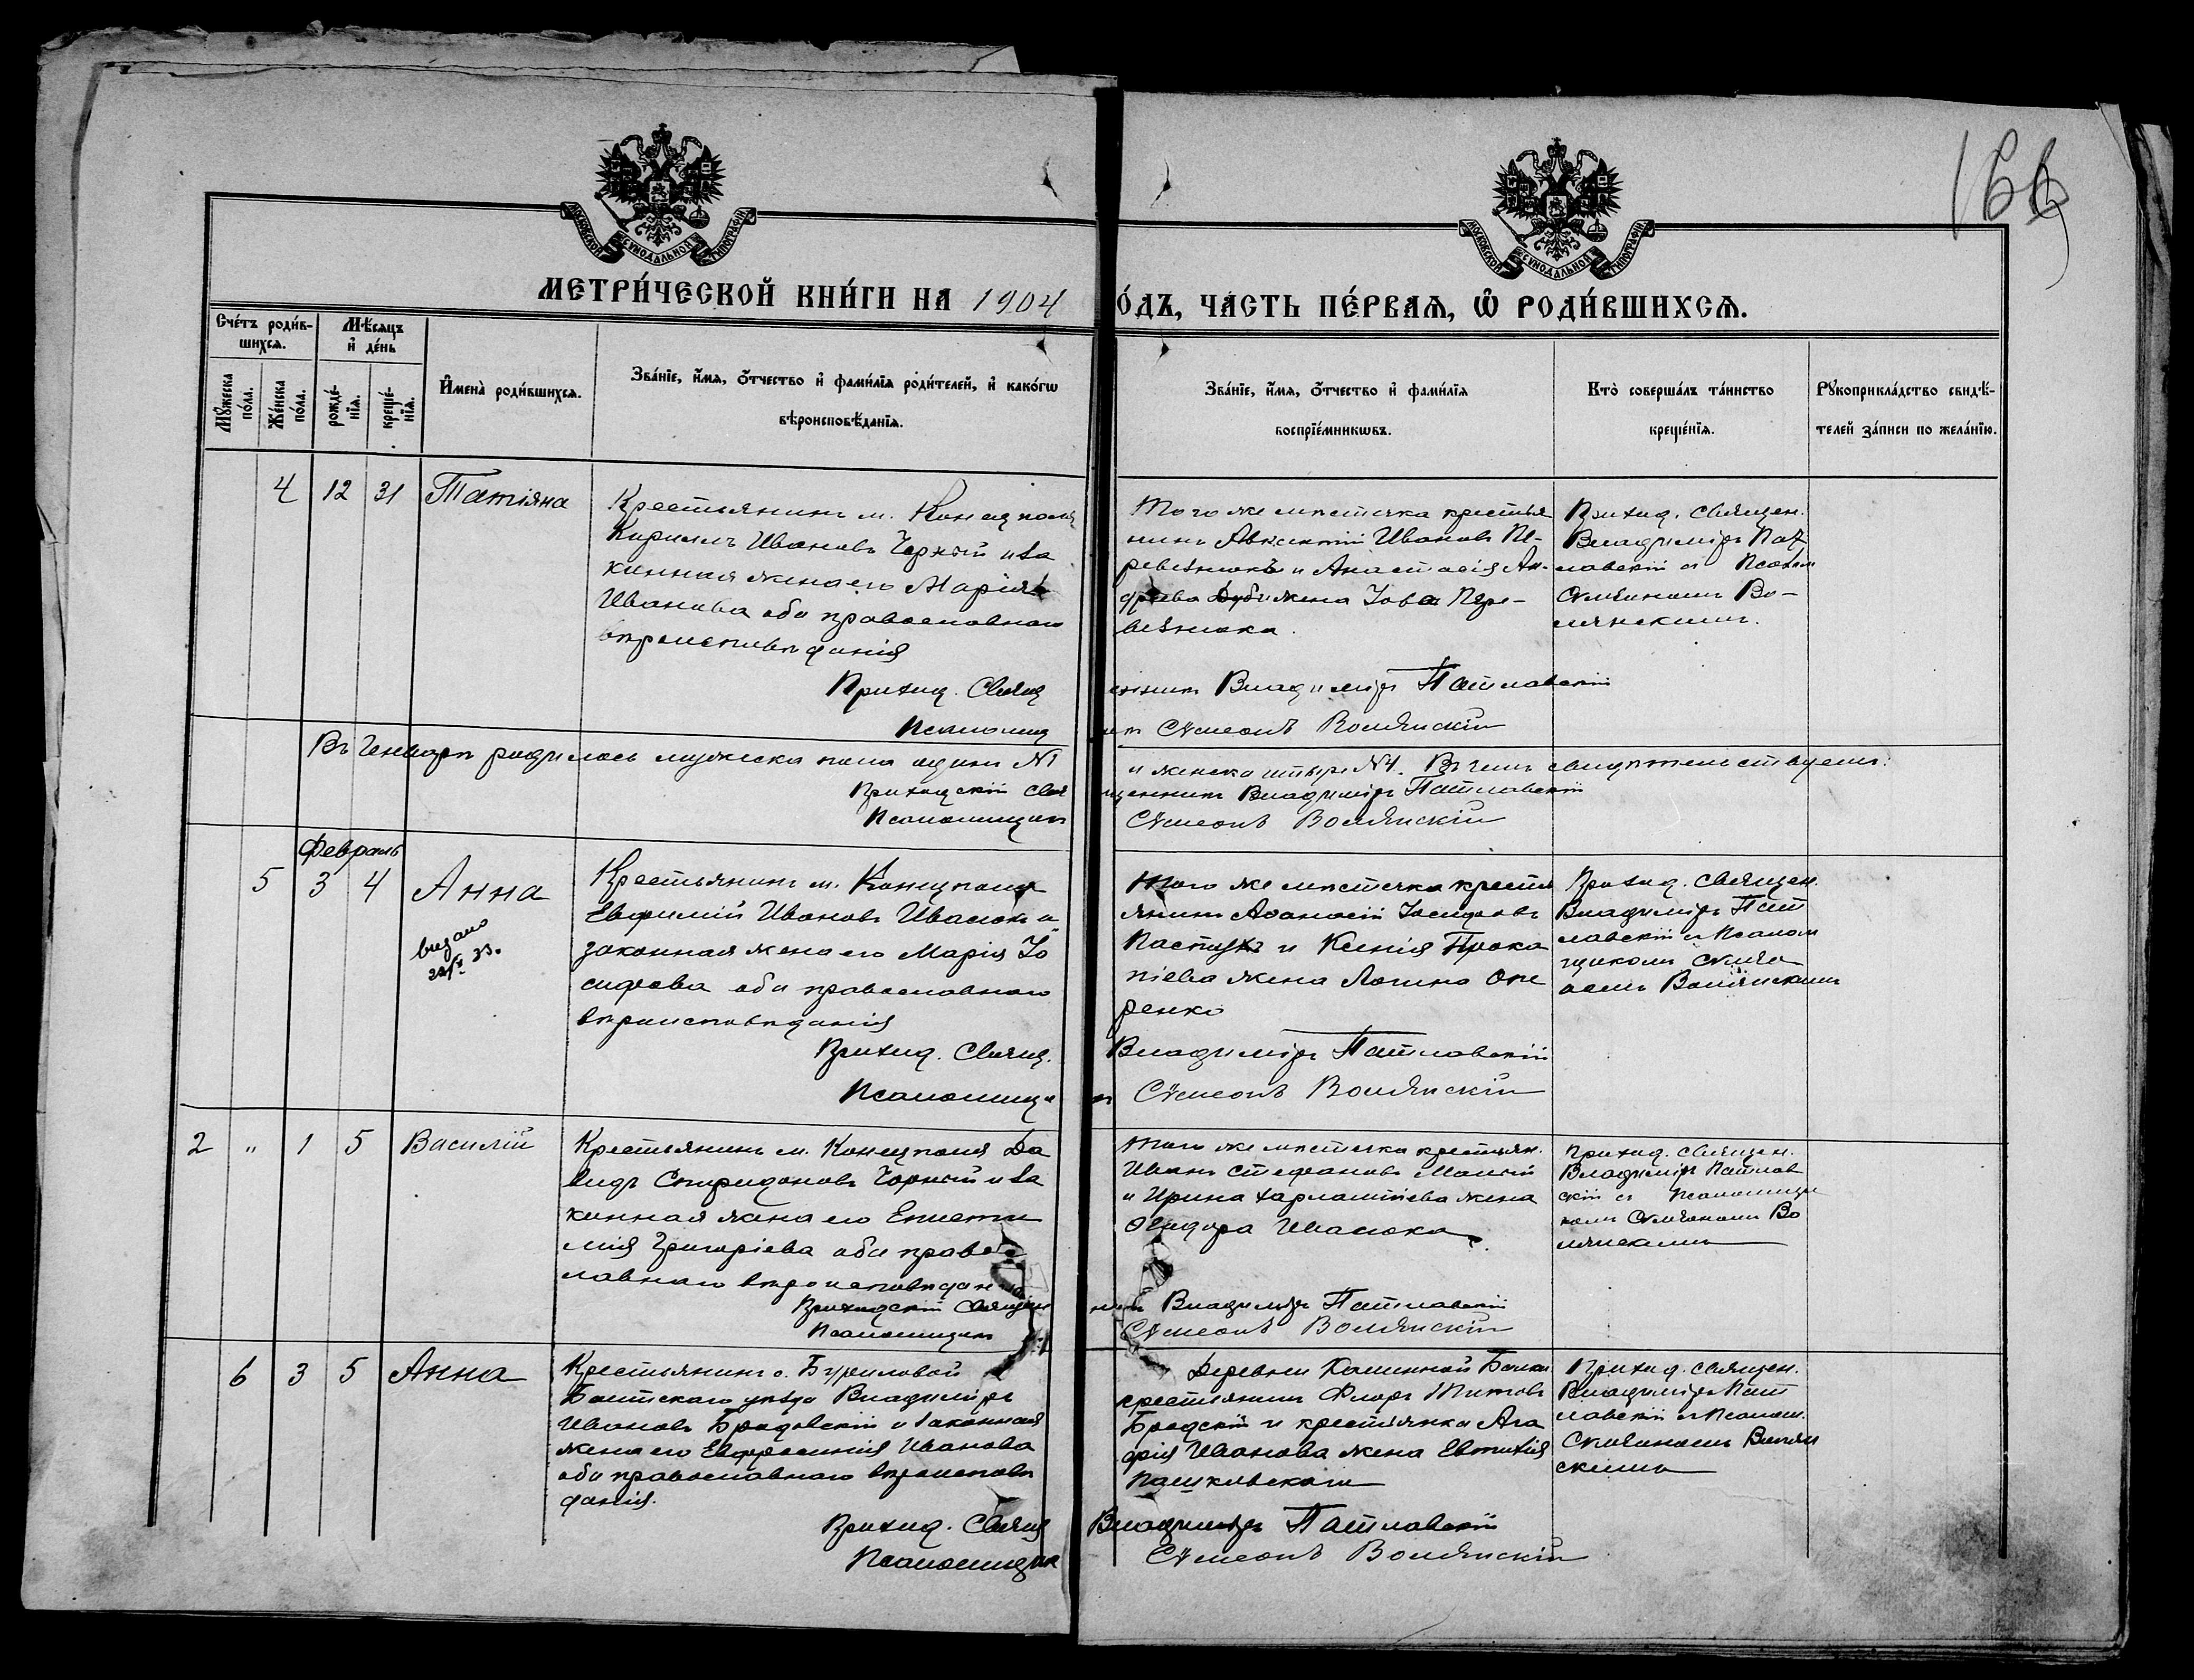 166
МОСКОВСКОЙ СѴНОДАЛЬНОЙ ТИПОГРАФІИ
МОСКОВСКОЙ СѴНОДАЛЬНОЙ ТИПОГРАФІИ
МЕТРИ́ЧЕСКОЙ КНИ́ГИ НА 1904
О́ДЪ, ЧА́СТЬ ПЕ́РВАѦ, Ѡ҆ РОДИ́ВШИХСѦ.
Сче́тъ роди́в-
шихсѧ.
Мѣ́сѧцъ
и҆ де́нь
Мꙋ́жеска
по́ла.
Же́нска
по́ла.
рожде́-
нїѧ.
креще́-
нїѧ.
И҆мена̀ роди́вшихсѧ.
Зва́нїе, и҆́мѧ, ѻ҆́тчество и҆ фами́лїѧ роди́телей, и҆ како́гѡ
вѣроисповѣ́данїѧ.
Зва́нїе, и҆́мѧ, ѻ҆́тчество и҆ фами́лїѧ
воспрїе́мникѡвъ.
Кто̀ соверша́лъ та́инство
креще́нїѧ.
Рꙋкоприкла́дство свидѣ́-
телей за́писи по жела́нїю.
4 12 31 Татіяна
Крестьянинъ м. Конецполя
Кириллъ Ивановъ Чорный и за
конная жена его Марія
Иванова оба православнаго
вѣроисповѣданія
Того же мѣстечка крестья
нинъ Авксентій Ивановъ Пе-
ревезнюкъ и Анастасія Ан-
дреева жена Іова Пере-
везнюка.
Приход. Священ.
Владиміръ Пат
лавскій съ Псалом
Сѵмеономъ Во-
лянскимъ.
Приход. Священникъ Владиміръ Патлавскій
Псаломщикъ Сѵмеонъ Волянскій
Въ Генварѣ родилось мужска пола одинъ №1 и женска четыре №4. Въ чемъ свидѣтельствуемъ:
Приходскій Священникъ Владиміръ Патлавскій
Псаломщикъ Сѵмеонъ Волянскій
Февраль
5 3 4 Анна
видано
33.
Крестьянинъ м. Конецполя
Евфимій Ивановъ Ивасюкъ и
законная жена его Марія Іо
сифова оба православнаго
вѣроисповѣданія
Того же мѣстечка кресть
янинъ Аѳанасій Іосифовъ
Пастухъ и Ксенія Прока
піева жена Логина Опе
ренко
Приход. Священ.
Владиміръ Пат
лавскій съ Псалом
щикомъ Сѵмео
номъ Волянскимъ
Приход. Священ. Владиміръ Патлавскій
Псаломщикъ Сѵмеонъ Волянскій
2 " 1 5 Василій
Крестьянинъ м. Конецполя Да
видъ Спиридоновъ Чорный и за
конная жена его Еписти
мія Григоріева оба правос
лавнаго вѣроисповѣданія
Того же мѣстечка крестьян.
Иванъ Стефановъ Малый
и Ирина Харлампіева жена
Ѳеодора Ивасюка
Приход. Священ.
Владиміръ Патлав
скій съ Псаломщи
комъ Сѵмеономъ Во
лянскимъ
Приходскій Священникъ Владиміръ Патлавскій
Псаломщикъ Сѵмеонъ Волянскій
6 3 5 Анна
Крестьянинъ с. Буриловой
Балтскаго уѣзда Владиміръ
Ивановъ Бродовскій и законная
жена его Евфросинія Иванова
оба православнаго вѣроисповѣ
данія.
Деревни Каменной Балки
крестьянинъ Флоръ Титовъ
Бродскій и крестьянка Ага
фія Иванова жена Евтихія
Пашковскаго
Приход. Священ.
Владиміръ Пат
лавскій съ Псалом.
Сѵмеономъ Волян
скимъ
Приход. Священ Владиміръ Патлавскій
Псаломщикъ Сѵмеонъ Волянскій